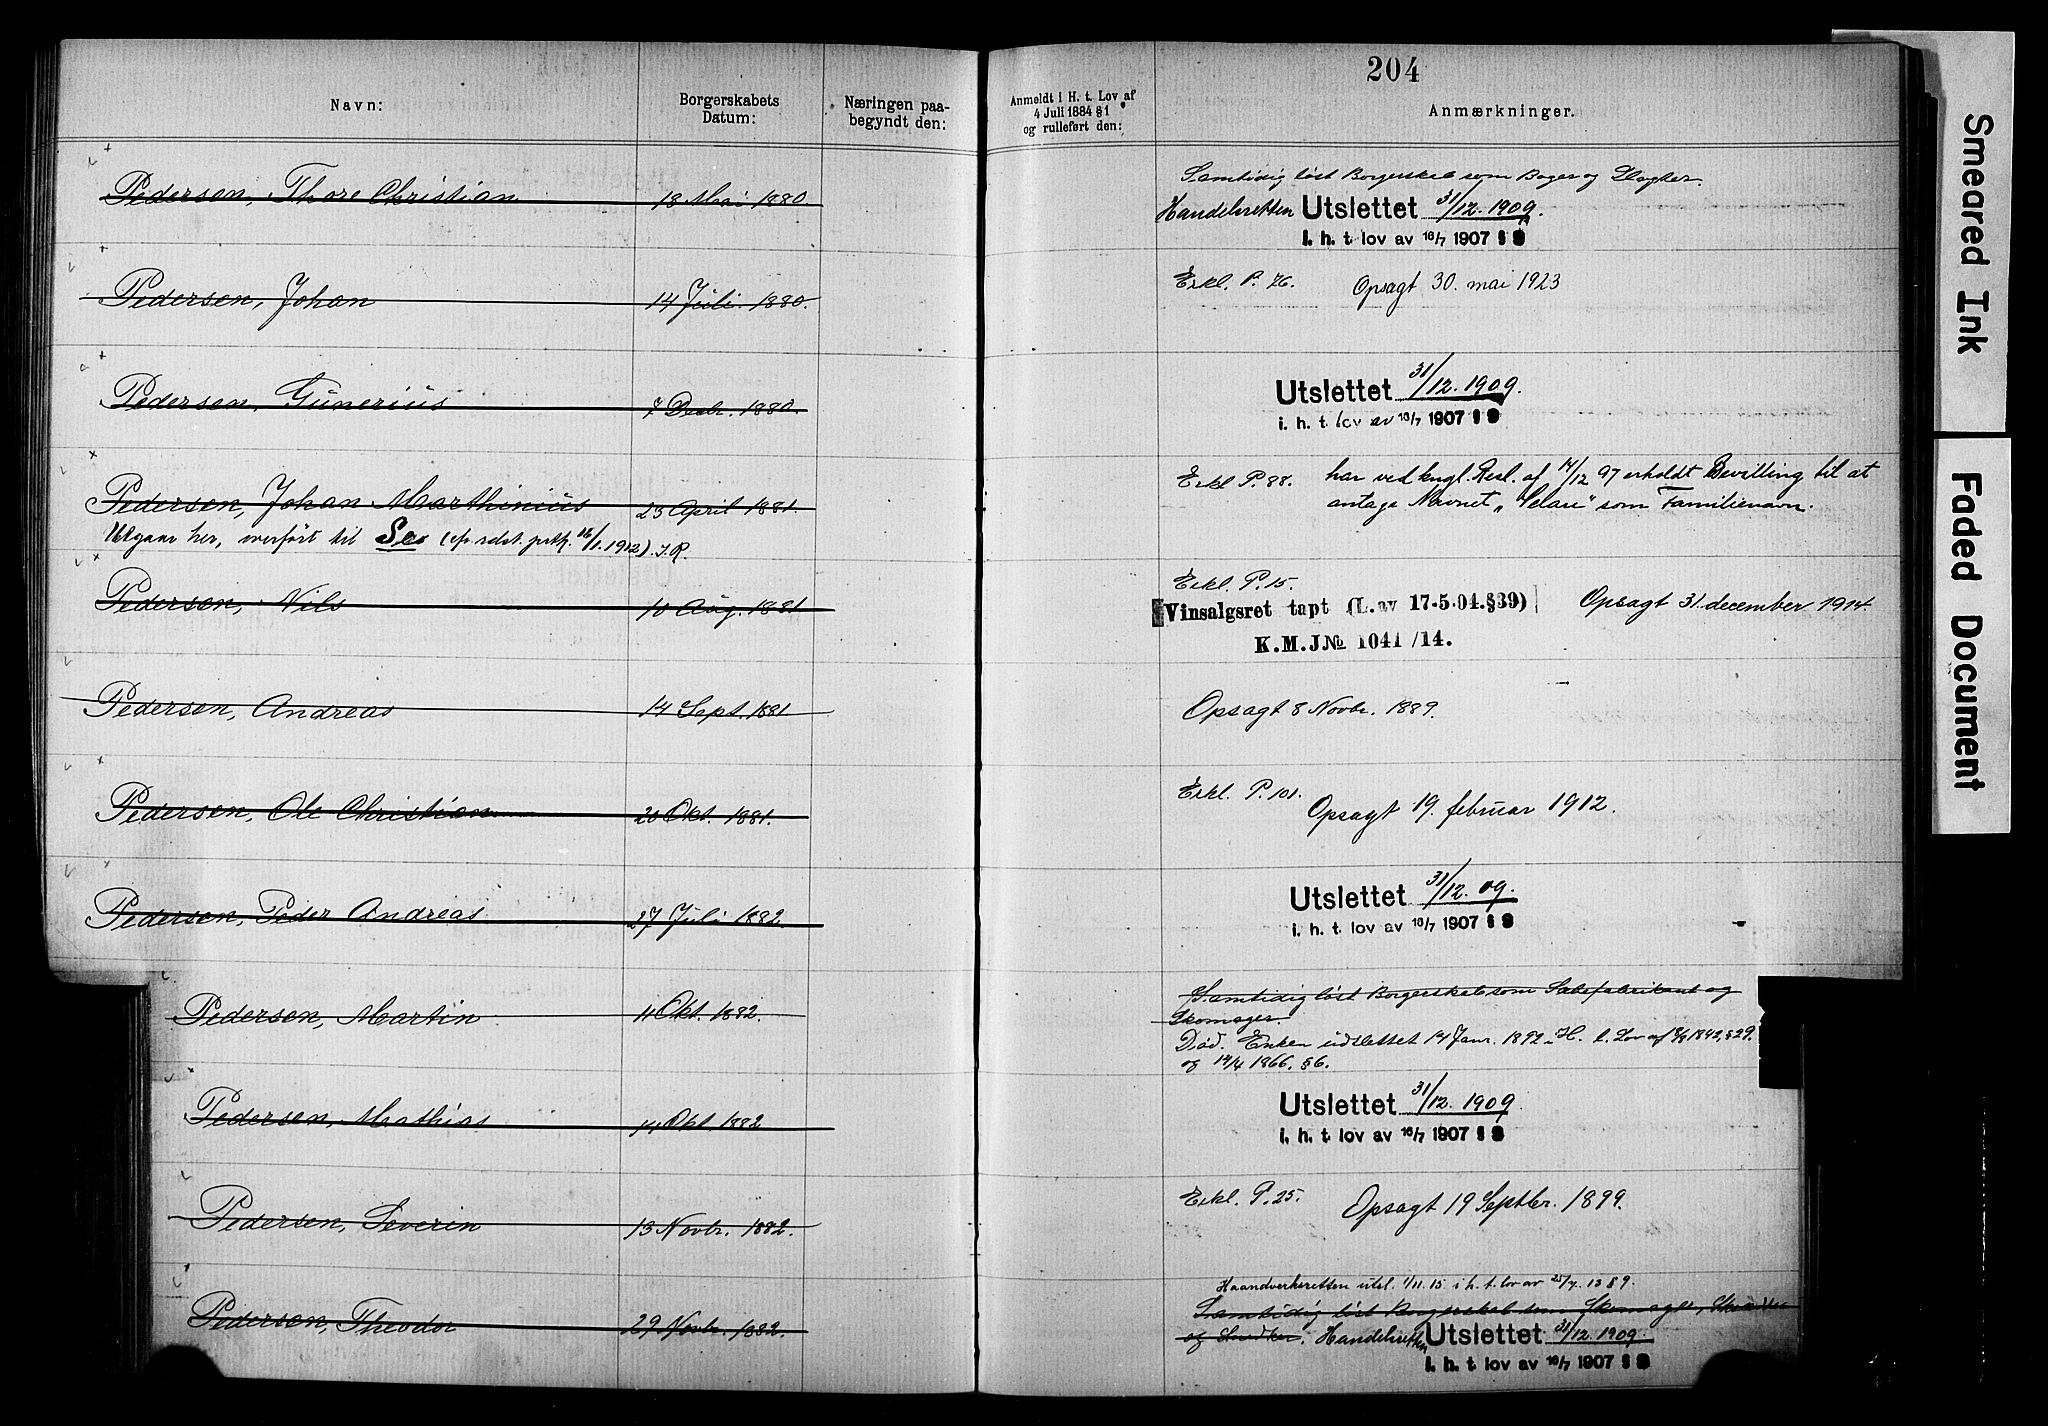 204
Navn:
Borgerskabets
Datum:
Næringen paa-
begyndt den:
Anmeldt i H. t. Lov af
4 Juli 1884 § 1
og rulleført den:
Anmærkninger.
Pedersen, Thore Christian 18 Mai 1880
Samtidig løst Borgerskab som Bager og Slagter.
Handelsretten Utslettet 31/12. 1909.
i. h. t. lov av 16/7 1907 §
Pedersen, Johan 14 Juli 1880.
Erkl. P. 76. Opsagt 30. mai 1923
Pedersen, Gunerius 7 Decbr. 1880.
Utslettet 31/12. 1909.
i. h. t. lov av 16/7 1907 §
Pedersen, Johan Marthinius 23 April 1881.
Erkl P. 88. har ved kngl. Resl. af 14/12 97 erholdt Bevilling til at
antage Navnet som Familienavn.
Utgaar her, overført til 1912). J.R.
Pedersen, Nils 10 Aug. 1881
Erkl. P. 15.
Vinsalgsret tapt (L. av 17-5-04. § 39) Opsagt 31. december 1914
K. M. J№ 1041/14.
Pedersen, Andreas 14 Sept. 1881.
Opsagt 8 Novbr. 1889.
Pedersen, Ole Christian 20 Okt. 1881.
Erkl. P. 101.
Opsagt 19. februar 1912.
Pedersen, Peder Andreas 27 Juli 1882.
Utslettet 31/12. 09.
i. h. t. lov av 16/7 1907 §
Pedersen, Martin 11 Okt. 1882.
Samtidig løst Borgerskab som Sæbefabrikant og
Skomager.
Død. Enken udslettet 14 Janr. 1892 H. t. Lov af 1842, § 29.
og 14/4 1866. § 6.
Pedersen, Mathias 14 Okt 1882
Utslettet 31/12. 1909
i. h. t. lov av 16/7 1907 §
Pedersen, Severin 13 Novbr. 1882.
Erkl. P. 25. Opsagt 19 Septbr. 1899.
Pedersen, Theodor 29 Novbr. 1882.
Haandverksretten utsl. 1/11. 15 i h. t. lov av
Samtidig løst Borgerskab som Skomager,
og Snedker. Handelsretten Utslettet 31/12. 1909.
i. h. t. lov av 16/7 1907 §
Smeared Ink
Faded Document